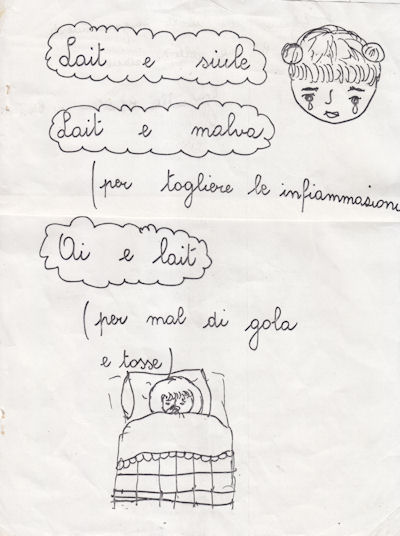 Lait e siule
Lait e malva
(per togliere le infiammasioni
Ai e lait
(per mal di gola
e tosse)